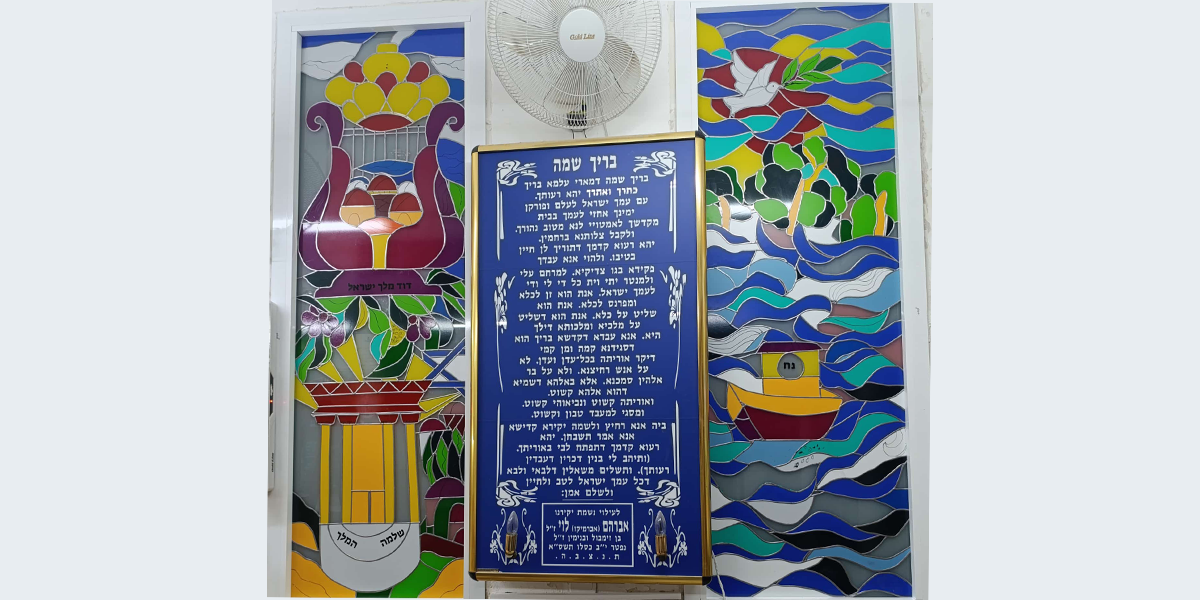 Gold Line
בריך שמה
בריך שמה דמארי עלמא בריך
כתרך ואתרך יהא רעותך.
עם עמך ישראל לעלם ופורקן
ימינך אחזי לעמך בבית
מקדשך לאמטויי לנא מטוב נהורך.
ולקבל צלותנא ברחמין.
יהא רעוא קדמך דתוריך לן חיין
בטיבו. ולהוי אנא עבדך
פקידא בגו צדיקיא. למרחם עלי
ולמנטר יתי וית כל די לי ודי
לעמך ישראל. אנת הוא זן לכלא
ומפרנס לכלא. אנת הוא
שליט על כלא. אנת הוא דשליט
על מלכיא ומלכותא דילך
היא. אנא עבדא דקדשא בריך הוא
דסגידנא קמה ומן קמי
דיקר אוריתה בכל־עדן ועדן. לא
על אנש רחיצנא. ולא על בר
אלהין סמכנא. אלא באלהא דשמיא
דהוא אלהא קשוט.
ואוריתה קשוט ונביאוהי קשוט.
ומסגי למעבד טבון וקשוט.
ביה אנא רחיץ ולשמה יקירא קדישא
אנא אמר תשבחן. יהא
רעוא קדמך דתפתח לבי באוריתך.
(ותיהב לי בנין דכרין דעבדין
רעותך). ותשלים משאלין דלבאי ולבא
דכל עמך ישראל לטב ולחיין
ולשלם אמן:
לעילוי נשמת יקירנו
אברהם (אברמיקו) לוי ז"ל
בן זימבול ובנימין ז"ל
נפטר י"ב כסלו תשס"א
ת.נ.צ.ב.ה.
נח
דוד מלך ישראל
שלמה המלך